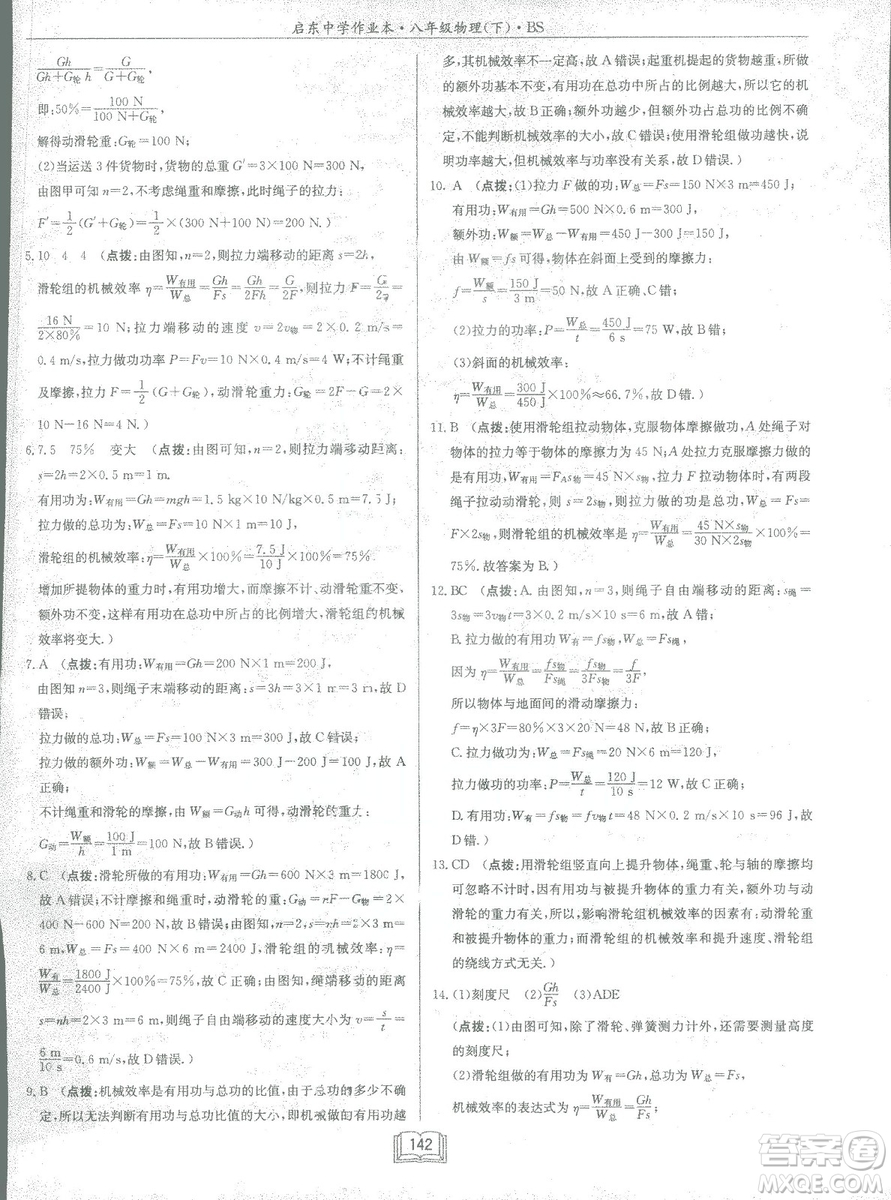 启东中学作业本·八年级物理(下)·BS
Gh/(Gh+G轮h)=G/(G+G轮)
即:50%=100 N/(100 N+G轮)
解得动滑轮重:G轮=100 N;
(2)当运送3件货物时,货物的总重G′=3×100 N=300 N,
由图甲可知n=2,不考虑绳重和摩擦,此时绳子的拉力:
F′=1/2(G′+G轮)=1/2×(300 N+100 N)=200 N。
5.10 4 4 (点拨:由图知,n=2,则拉力端移动的距离s=2h,
滑轮组的机械效率η=W有用/W总=Gh/Fs=Gh/2Fh=G/2F,则拉力F=G/2η=
16 N/(2×80%)=10 N;拉力端移动的速度v=2v物=2×0.2 m/s=
0.4 m/s,拉力做功功率P=Fv=10 N×0.4 m/s=4 W;不计绳重
及摩擦,拉力F=1/2(G+G轮),动滑轮重:G轮=2F-G=2×
10 N-16 N=4 N。)
6.7.5 75% 变大 (点拨:由图可知,n=2,拉力端移动距离:
s=2h=2×0.5 m=1 m,
有用功为:W有用=Gh=mgh=1.5 kg×10 N/kg×0.5 m=7.5 J,
拉力做的总功为:W总=Fs=10 N×1 m=10 J,
滑轮组的机械效率:η=W有用/W总×100%=7.5 J/10 J×100%=75%。
增加所提物体的重力时,有用功增大,而摩擦不计、动滑轮重不变,
额外功不变,这样有用功在总功中所占的比例增大,滑轮组的机械
效率将变大。)
7.A (点拨:有用功:W有用=Gh=200 N×1 m=200 J,
由图知n=3,则绳子末端移动的距离:s=3h=3×1 m=3 m,故D
错误;
拉力做的总功:W总=Fs=100 N×3 m=300 J,故C错误;
拉力做的额外功:W额=W总-W有用=300 J-200 J=100 J,故A
正确;
不计绳重和滑轮的摩擦,由W额=G动h可得,动滑轮的重力:
G动=W额/h=100 J/1 m=100 N,故B错误。)
8.C (点拨:滑轮所做的有用功:W有用=Gh=600 N×3 m=1800 J,
故A错误;不计摩擦和绳重,滑轮的重力:G动=nF-G=2×
400 N-600 N=200 N,故B错误;由图知,n=2,s=nh=2×3 m=
6 m,W总=Fs=400 N×6 m=2400 J,滑轮组的机械效率:η=
W有用/W总=1800 J/2400 J×100%=75%,故C正确;由图知,绳端移动的距离:
s=nh=2×3 m=6 m,则绳子自由端移动的速度大小为v=s/t=
6 m/10 s=0.6 m/s,故D错误。)
9.B (点拨:机械效率是有用功与总功的比值,由于总功的多少不确
定,所以无法判断有用功与总功比值的大小,即机械做的有用功越
多,其机械效率不一定高,故A错误;起重机提起的货物越重,所做
的额外功基本不变,有用功在总功中所占的比例越大,所以它的机
械效率越大,故B正确;额外功越少,额外功占总功的比例大小不确
定,不能判断机械效率的大小,故C错误;使用滑轮组做功越快,说
明功率越大,但机械效率与功率没有关系,故D错误。)
10.A (点拨:(1)拉力F做的功:W总=Fs=150 N×3 m=450 J;
有用功:W有用=Gh=500 N×0.6 m=300 J,
额外功:W额=W总-W有用=450 J-300 J=150 J,
由W额=fs可得,物体在斜面上受到的摩擦力:
f=W额/s=150 J/3 m=50 N,故A正确、C错;
(2)拉力的功率:P=W总/t=450 J/6 s=75 W,故B错;
(3)斜面的机械效率:
η=W有用/W总=300 J/450 J×100%≈66.7%,故D错。)
11.B (点拨:使用滑轮组拉动物体,克服物体摩擦做功,A处绳子对
物体的拉力等于物体受到的摩擦力为45 N;A处拉力克服摩擦力
做有用功,则W有用=FAs物=45 N×s物;拉动物体时,有两段
绳子拉动动滑轮,则s=2s物;拉动物体的总功为:W总=Fs=
F×2s物,则滑轮组的机械效率是η=W有用/W总=45 N×s物/(30 N×2s物)×100%=
75%。故答案为B。)
12.BC (点拨:A.由图知,n=3,则绳子自由端移动的距离:s绳=
3s物=3v物t=3×0.2 m/s×10 s=6 m,故A错;
B.拉力做的有用功:W有用=fs物,W总=Fs绳,
因为η=W有用/W总=fs物/Fs绳=fs物/3Fs物=f/3F,
所以物体与地面间的滑动摩擦力:
f=η×3F=80%×3×20 N=48 N,故B正确;
C.拉力做功为:W总=Fs绳=20 N×6 m=120 J,
拉力做功的功率:P=W总/t=120 J/10 s=12 W,故C正确;
D.有用功:W有用=fs物=fv物t=48 N×0.2 m/s×10 s=96 J,故
D错。)
13.CD (点拨:用滑轮组竖直向上提升物体,绳重、轮与轴的摩擦均
可忽略不计时,有用功为克服物体的重力做的功,额外功为克服动
滑轮的重力所做的功,所以,影响滑轮组机械效率的因素有:动滑
轮的重力、被提升物体的重力;而滑轮组的机械效率与滑轮组
的绕线方式无关。)
14.(1)刻度尺 (2)Gh/Fs (3)ADE
(点拨:(1)由图可知,除了滑轮、弹簧测力计外,还需要测量高度
的刻度尺;
(2)滑轮组对重物做的功为有用功,拉力做的功为总功,则测滑轮组
机械效率的表达式为η=W有用/W总=Gh/Fs;
142